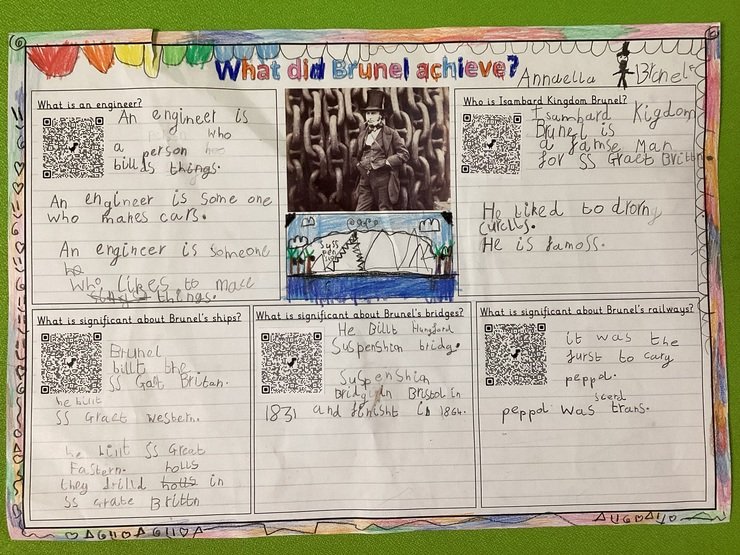 What did Brunel achieve?
Annaella Brnel
What is an engineer?
An engineer is
who
a person
bills things.
An engineer is some one
who makes cars.
An engineer is someone
who likes to mace
things.
Who is Isambard Kingdom Brunel?
Isambard Kigdom
Brunel is
a famse man
for SS Graet Brittn
He liked to drorng
curcles.
He is famoss.
Suspension
What is significant about Brunel's ships?
Brunel
billt the
SS Gat Britan.
he billt
SS Graet western.
he billt SS Great
Eastern. holls
they drilld holls in
SS Grate Brittn
What is significant about Brunel's bridges?
He Billt Hungford
Suspenshin bridg.
Suspenshin
Bridg in Bristol in
1831 and finisht in 1864.
What is significant about Brunel's railways?
it was the
furst to cary
peppol.
scerd
peppol was trans.